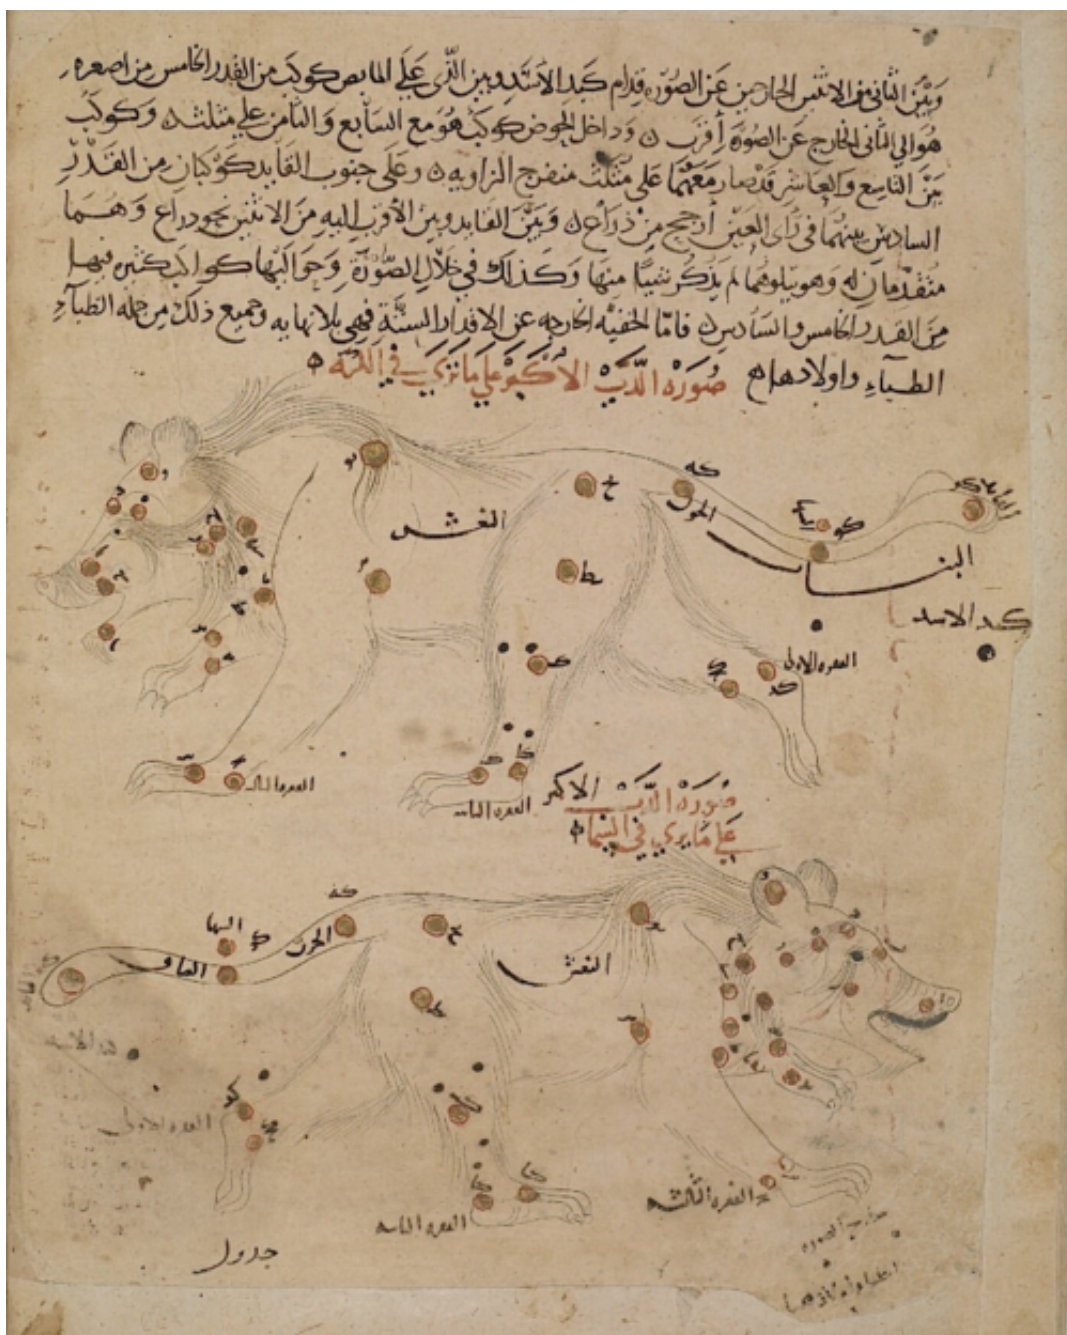 وبين الثاني من الاثنين الخارجين عن الصورة قدام كبد الاسد وبين الذي على المابض كوكب من القدر الخامس من اصغره
هو الى الثاني الخارج عن الصورة أقرب ٥ وداخل الحوض كوكب هو مع السابع والثامن على مثلثه وكوكب
بين التاسع والعاشر قد صار معهما على مثلث منفرج الزاويه ٥ وعلى جنوب القايد كوكبان من القدر
السادس بينهما في رأى العين أرجح من ذراع ٥ وبين القايد وبين الأقرب اليه من الاثنين نحو ذراع وهما
متقدمان له وهو يتلوهما لم يذكر شيئا منها وكذلك في خلال الصورة وحواليها كواكب كثيره فيها
من القدر الخامس والسادس ٥ فامّا الخفيّه الخارجه عن الاقدار الستّة فهي بلا نهايه وجميع ذلك من جمله الظباء
الظباء واولادها ٥ صورة الدب الأكبر على ما ترى في الكرة ٥
كه
و
ح
النعش
الحون
السها
كو
ط
البنات
كبد الاسد
القفزه الاولى
كد
القفزه الثالثه
القفزه الثانيه
صورة الدب الاكبر
على ما يرى في السما ٥
كه
السها
الحون
ح
العناق
النعش
ط
كبد الاسد
القفزه الاولى
القفزه الثالثه
القفزه الثانيه
جدول
خارج الصوره
الظباء واولادها